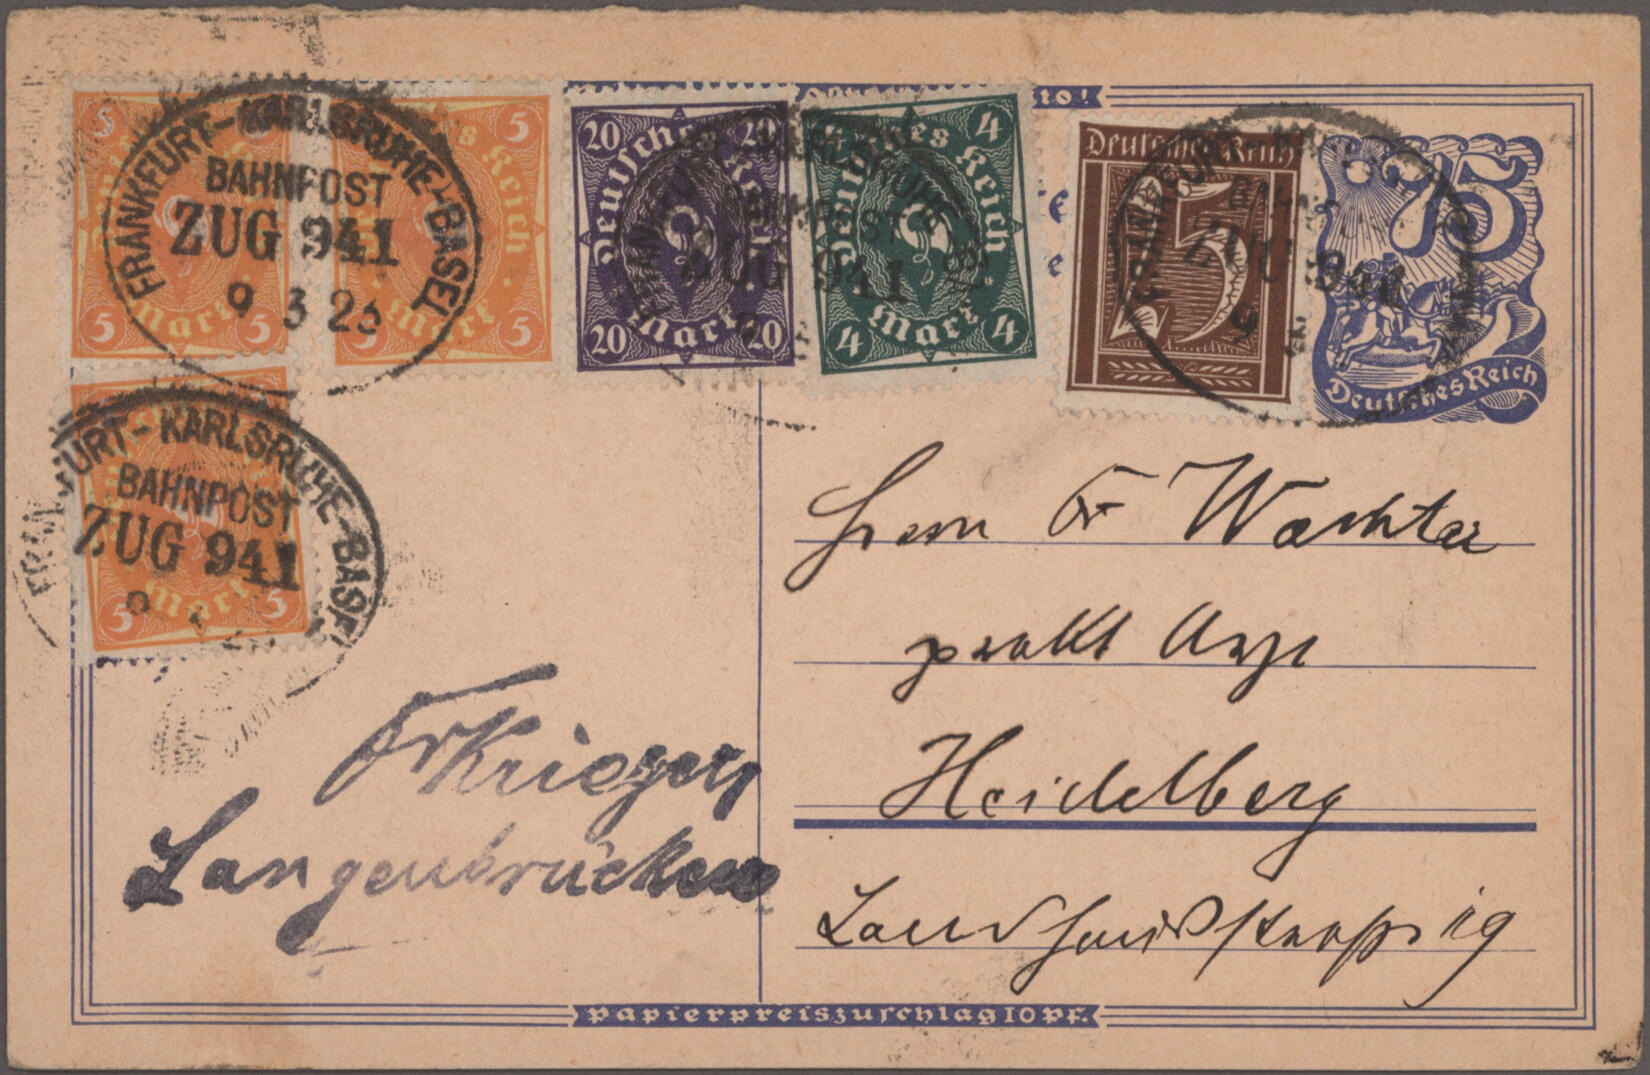 FRANKFURT-KARLSRUHE-BASEL
BAHNPOST
ZUG 941
9 3 23
5
5
5
5
5
5
Mark
Mark
20
20
20
20
Deutsches Reich
Mark
ZUG 941
4
4
4
Deutsches Reich
Mark
to!
Deutsches Reich
5
FRANKFURT
BAHNPOST
ZUG 941
75
Deutsches Reich
FRANKFURT-KARLSRUHE-BASEL
BAHNPOST
ZUG 941
5
5
Mark
Herrn Dr Wachter
prakt Arzt
Heidelberg
Landhausstrasse 19
Dr Krieger
Langenbrücken
Papierpreiszuschlag 10 Pf.